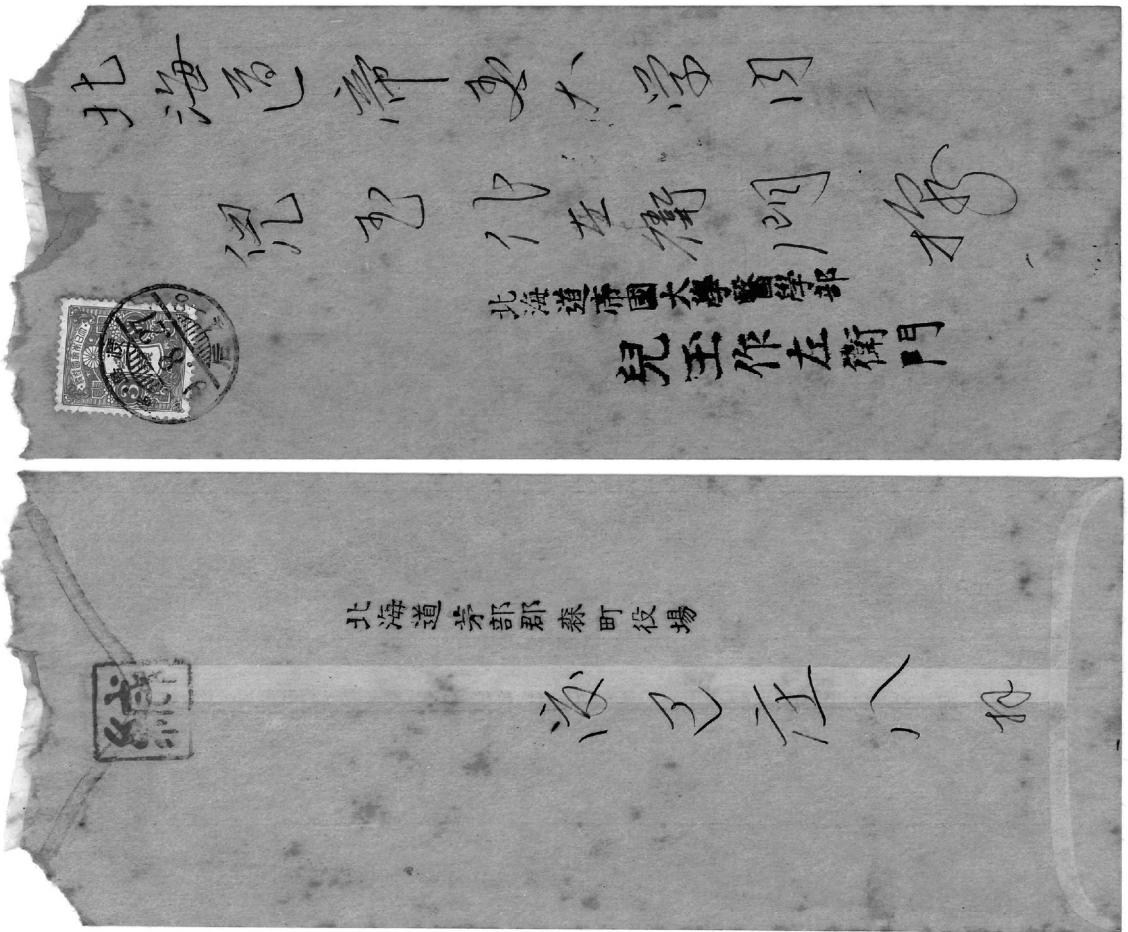 北海道帝国大学内
児玉作左衛門様
北海道帝國大學醫學部
兒玉作左衛門
北海道茅部郡森町役場
庄八